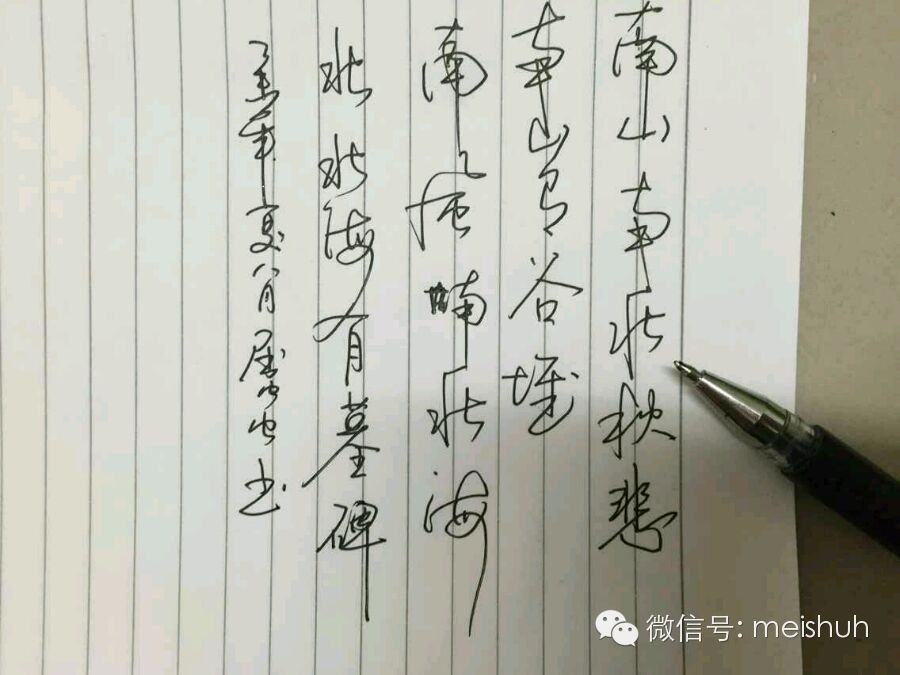 南山南北秋悲
南山有谷堆
南风喃北海
北北海有墓碑
年 八月 书
微信号: meishuh